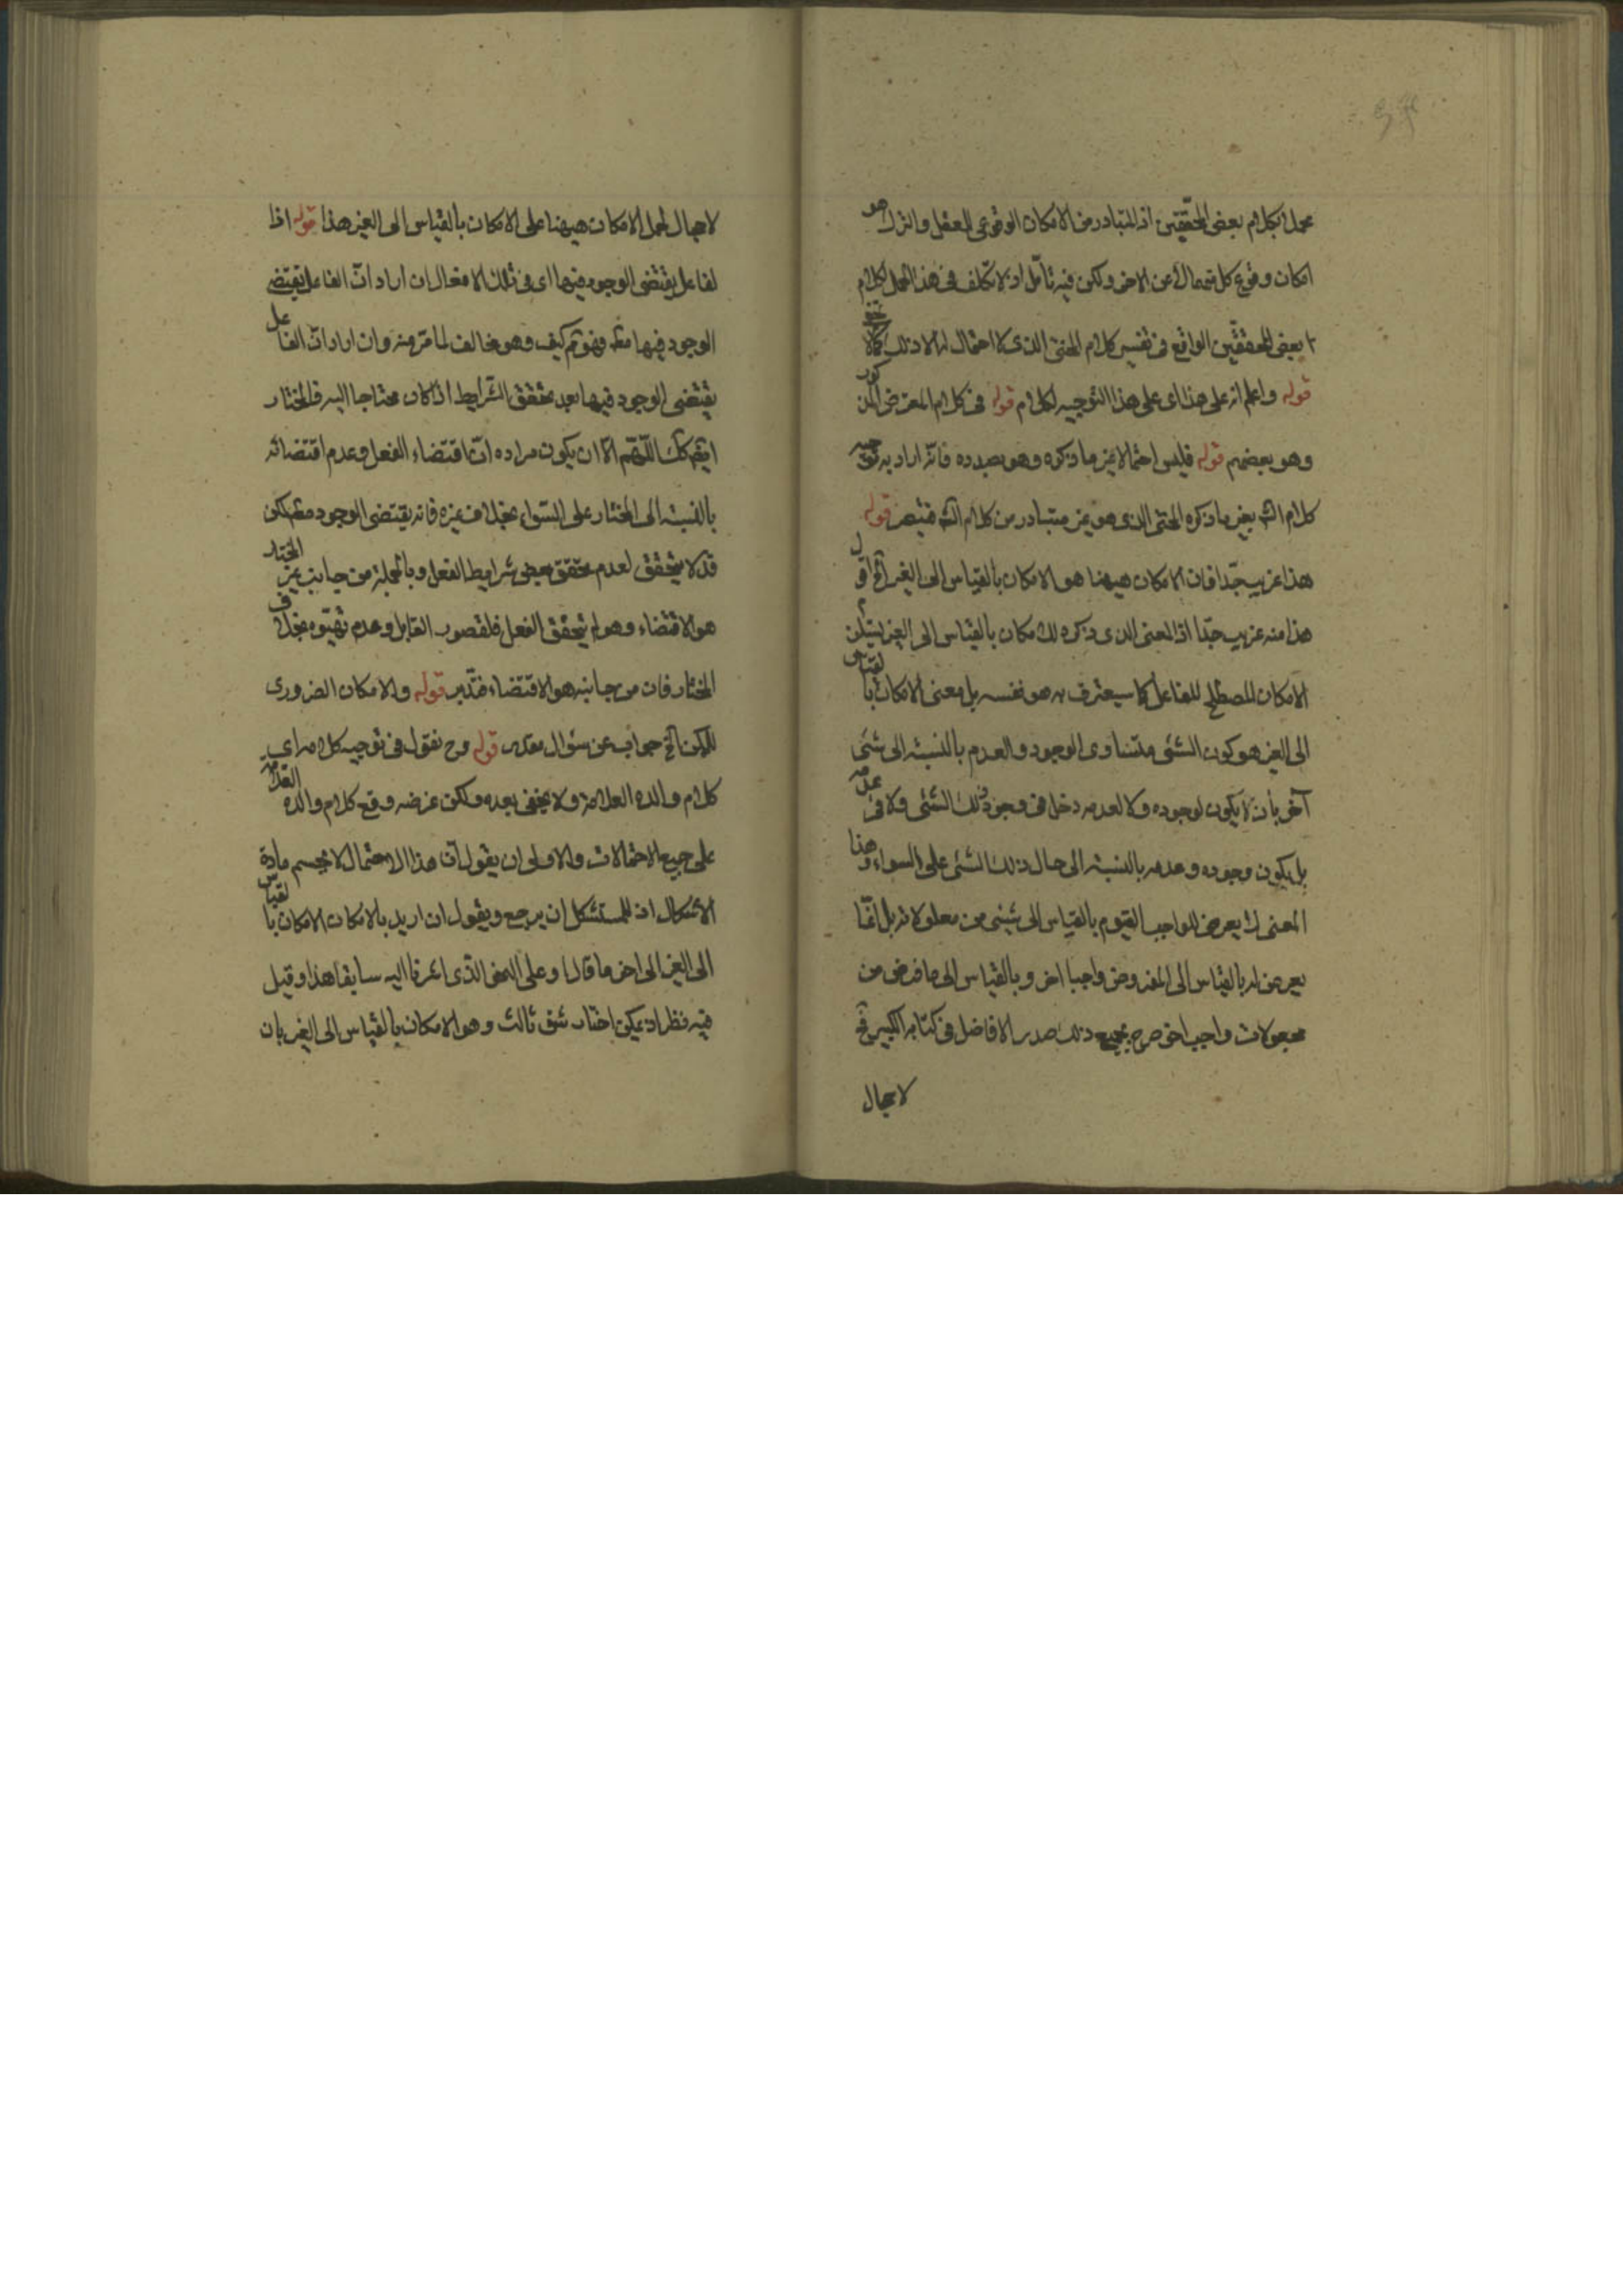 محمل لكلام بعض المحققين اذ المتبادر من الامكان الوقوعى للفعل والترك هو
امكان وقوع كل منهما بدلا عن الاخر ولكن فيه تأمل اذ لا تكلف فى هذا الحمل لكلام
بعض المحققين الواقع فى تفسير كلام المحشى الذى لا احتمال له الا ذلك كما لا يخفى
قوله واعلم انه على هذا اى على هذا التوجيه لكلام قوله فى كلام المعترض المذكور
وهو بعضهم قوله فليس احتمالا غير ما ذكره وهو بصدده فانه اراد به توجيه
كلام الش بغير ما ذكره المحشى الذى هو غير متبادر من كلام الش فتبصر قوله
هذا غريب جدا فان الامكان هيهنا هو الامكان بالقياس الى الغير الخ اقول
هذا منه غريب جدا اذ المعنى الذى ذكره للامكان بالقياس الى الغير يستلزم
الامكان المصطلح للفاعل كما سيعترف به هو نفسه بل معنى الامكان بالقياس
الى الغير هو كون الشئ متساوى الوجود والعدم بالنسبة الى شئ
آخر بأن لا يكون لوجوده ولا لعدمه دخل فى وجود ذلك الشئ ولا فى عدمه
بل يكون وجوده وعدمه بالنسبة الى حال ذلك الشئ على السواء وهذا
المعنى لا يعرض للواجب القيوم بالقياس الى شيئ من معلولاته بل انما
يعرض له بالقياس الى المفروض واجبا اخر وبالقياس الى ما فرض من
مجعولات واجب اخر صرح بجميع ذلك صدر الافاضل فى كتابه الكبير فح
لا مجال
لا مجال لحمل الامكان هيهنا على الامكان بالقياس الى الغير هذا قوله اذا
لفاعل يقتضى الوجود فيها اى فى تلك الافعال ان اراد ان الفاعل يقتضى
الوجود فيها مط فهو ثم كيف وهو مخالف لما مر منه وان اراد ان الفاعل
يقتضى الوجود فيها بعد تحقق الشرايط اذا كان محتاجا اليه فالمختار
ايضا كك اللهم الا ان يكون مراده ان اقتضاء الفعل وعدم اقتضائه
بالنسبة الى المختار على السواء بخلاف غيره فانه يقتضى الوجود مط لكن
قد لا يتحقق لعدم تحقق بعض شرايط الفعل وبالجملة من جانب غير المختار
هو الاقتضاء وهو لم يتحقق الفعل فلقصور القابل وعدم تهيئوه بخلاف
المختار فان من جانبه هو الاقتضاء فتدبر قوله والامكان الضرورى
للممكن الخ جواب عن سئوال مقدر قوله وح نقول فى توجيه كلامه اى
كلام والده العلامة ولا يخفى بعده ولكن غرضه وقع كلام والده العلامه
على جميع الاحتمالات والاولى ان يقول ان هذا الاحتمال لا يحسم مادة
الاشكال اذ للمستشكل ان يرجع ويقول ان اريد بالامكان الامكان بالقياس
الى الغير الى اخر ما قال وعلى النحو الذى اشرنا اليه سابقا هذا وقيل
فيه نظر اذ يمكن اختار شق ثالث وهو الامكان بالقياس الى الغير بان